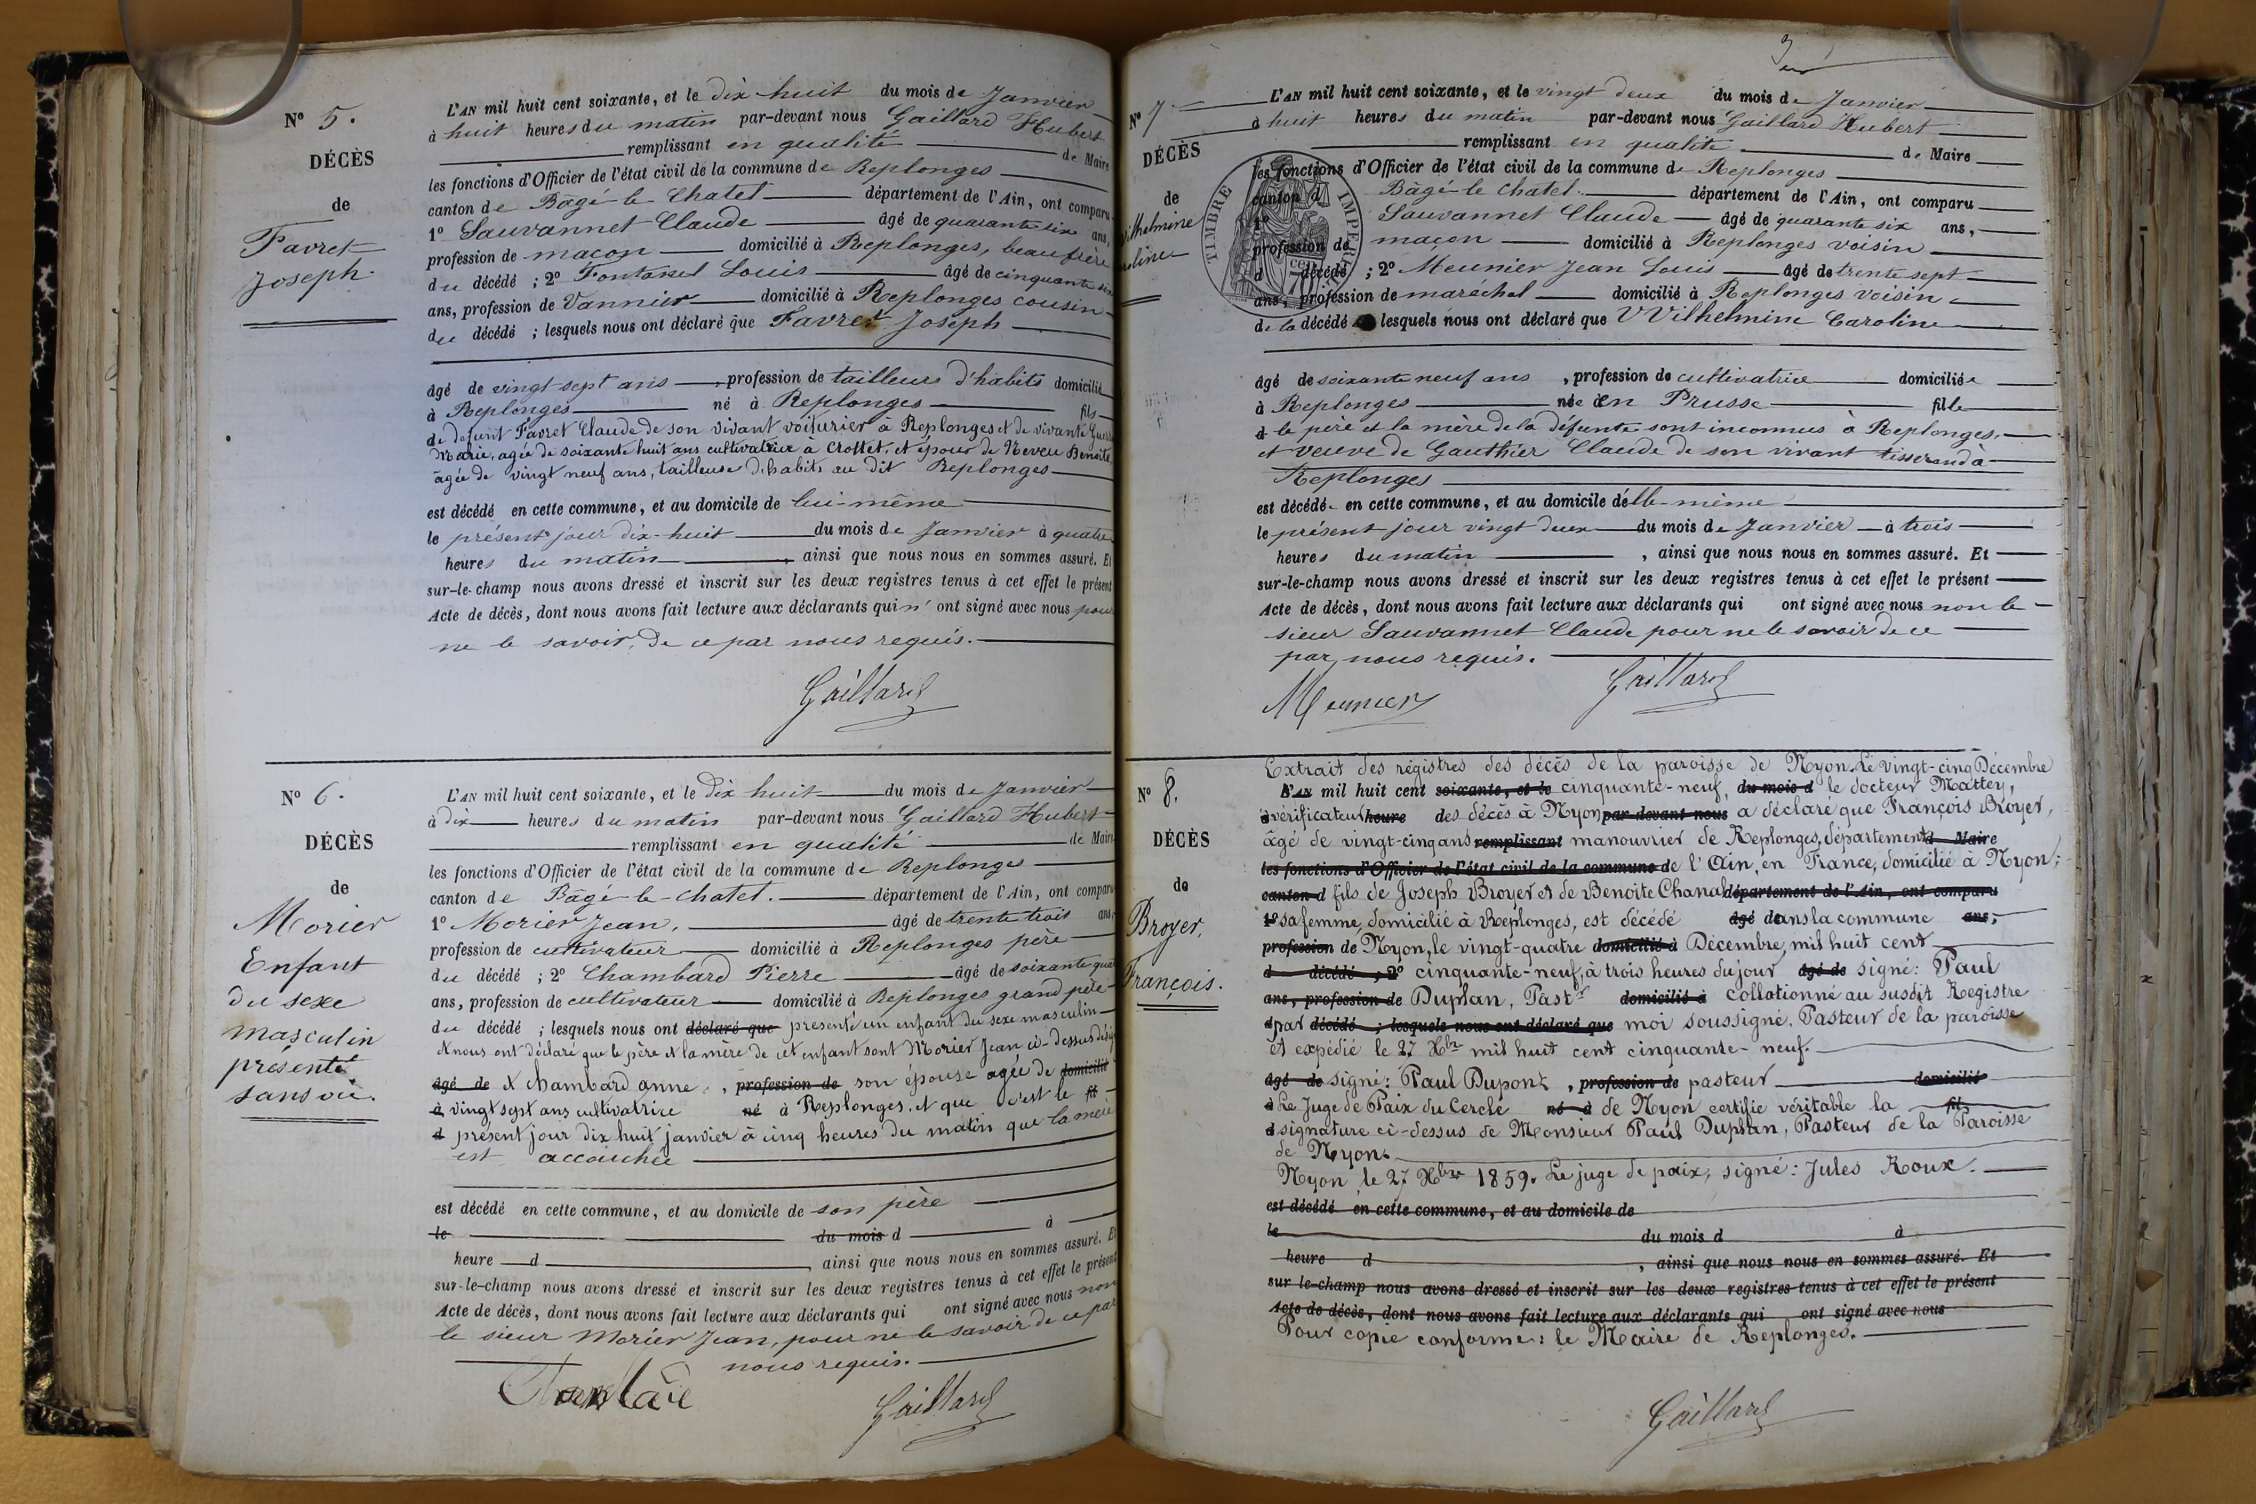 Nº 5.
DÉCÈS
de
Favret
Joseph.
L'AN mil huit cent soixante, et le dix huit du mois de Janvier
à huit heures du matin par-devant nous Gaillard Hubert
remplissant en qualité de Maire
les fonctions d'Officier de l'état civil de la commune de Replonges
canton de Bâgé-le-Chatel département de l'Ain, ont comparu
1º Sauvannet Claude âgé de quarante six ans,
profession de maçon domicilié à Replonges, beau frère
du décédé ; 2º Fontanel Louis âgé de cinquante six
ans, profession de Vannier domicilié à Replonges cousin
du décédé ; lesquels nous ont déclaré que Favret Joseph
âgé de vingt-sept ans, profession de tailleurs d'habits domicilié
à Replonges né à Replonges fils
de defunt Favret Claude de son vivant voiturier à Replonges et de vivante
Marie, agée de soixante huit ans cultivatrice à Crottet, et épour de Neveu Benoite
âgée de vingt neuf ans, tailleuse d'habits au dit Replonges
est décédé en cette commune, et au domicile de lui-même
le présent jour dix-huit du mois de Janvier à quatre
heures du matin, ainsi que nous nous en sommes assuré. Et
sur-le-champ nous avons dressé et inscrit sur les deux registres tenus à cet effet le présent
Acte de décès, dont nous avons fait lecture aux déclarants qui n'ont signé avec nous pour
ne le savoir, de ce par nous requis.
Gaillard
Nº 6.
DÉCÈS
de
Morier
Enfant
du sexe
masculin
présenté
sans vie.
L'AN mil huit cent soixante, et le dix huit du mois de Janvier
à dix heures du matin par-devant nous Gaillard Hubert
remplissant en qualité de Maire
les fonctions d'Officier de l'état civil de la commune de Replonges
canton de Bâgé-le-Chatel. département de l'Ain, ont comparu
1º Morier Jean, âgé de trente trois ans,
profession de cultivateur domicilié à Replonges père
du décédé ; 2º Chambard Pierre âgé de soixante
ans, profession de cultivateur domicilié à Replonges grand père
du décédé ; lesquels nous ont déclaré que présenté un enfant du sexe masculin
et nous ont déclaré que le père et la mère de cet enfant sont Morier Jean ci-dessus
âgé de et Chambard anne, profession de son épouse agée de domicilié
à vingt sept ans cultivatrice né à Replonges, et que c'est le fil
d présent jour dix huit janvier à cinq heures du matin que la mère
est accouchée
est décédé en cette commune, et au domicile de son père
le du mois d à
heure d, ainsi que nous nous en sommes assuré. Et
sur-le-champ nous avons dressé et inscrit sur les deux registres tenus à cet effet le présent
Acte de décès, dont nous avons fait lecture aux déclarants qui ont signé avec nous non
le sieur Morier Jean, pour ne le savoir de ce par
nous requis.
Gaillard
Nº 7
DÉCÈS
de
Vilhelmine
Caroline
TIMBRE IMPÉRIAL
70 cen
L'AN mil huit cent soixante, et le vingt deux du mois de Janvier
à huit heures du matin par-devant nous Gaillard Hubert
remplissant en qualité de Maire
les fonctions d'Officier de l'état civil de la commune de Replonges
canton d Bâgé-le-Chatel. département de l'Ain, ont comparu
1º Sauvannet Claude âgé de quarante six ans,
profession de maçon domicilié à Replonges voisin
d décédé ; 2º Meunier Jean Louis âgé de trente sept
ans, profession de maréchal domicilié à Replonges voisin
de la décédé lesquels nous ont déclaré que Vilhelmine Caroline
âgé de soixante neuf ans, profession de cultivatrice domiciliée
à Replonges née en Prusse fille
d le père et la mère de la défunte sont inconnus à Replonges,
et veuve de Gauthier Claude de son vivant tisserand à
Replonges
est décédée en cette commune, et au domicile d'elle-même
le présent jour vingt deux du mois de Janvier à trois
heures du matin, ainsi que nous nous en sommes assuré. Et
sur-le-champ nous avons dressé et inscrit sur les deux registres tenus à cet effet le présent
Acte de décès, dont nous avons fait lecture aux déclarants qui ont signé avec nous non le
sieur Sauvannet Claude pour ne le savoir de ce
par nous requis.
Meunier Gaillard
Nº 8.
DÉCÈS
de
Broyer,
François.
Extrait des régistres des décès de la paroisse de Nyon. Le vingt-cinq Décembre
L'AN mil huit cent soixante, et le cinquante-neuf, du mois d le docteur Mattey,
à vérificateur heure des décès à Nyon par-devant nous a déclaré que François Broyer,
âgé de vingt-cinq ans remplissant manouvrier de Replonges, département d Maire
les fonctions d'Officier de l'état civil de la commune de l'Ain, en France, domicilié à Nyon,
canton d fils de Joseph Broyer et de Benoite Chanal département de l'Ain, ont comparu
1º sa femme, domicilié à Replonges, est décédé âgé dans la commune ans,
profession de Nyon, le vingt-quatre domicilié à Décembre, mil huit cent
d décédé ; 2º cinquante-neuf, à trois heures du jour âgé de signé: Paul
ans, profession de Duplan, Past.r domicilié à Collationné au susdit Registre
d par décédé ; lesquels nous ont déclaré que moi soussigné, Pasteur de la paroisse
et expédié le 27 Xbre mil huit cent cinquante-neuf.
âgé de signé: Paul Dupont, profession de pasteur domicilié
à Le Juge de Paix du Cercle né à de Nyon certifie véritable la fil
d signature ci-dessus de Monsieur Paul Duplan, Pasteur de la Paroisse
de Nyon.
Nyon le 27 Xbre 1859. Le juge de paix, signé: Jules Roux.
est décédé en cette commune, et au domicile de
le du mois d à
heure d, ainsi que nous nous en sommes assuré. Et
sur-le-champ nous avons dressé et inscrit sur les deux registres tenus à cet effet le présent
Acte de décès, dont nous avons fait lecture aux déclarants qui ont signé avec nous
Pour copie conforme: le Maire de Replonges.
Gaillard